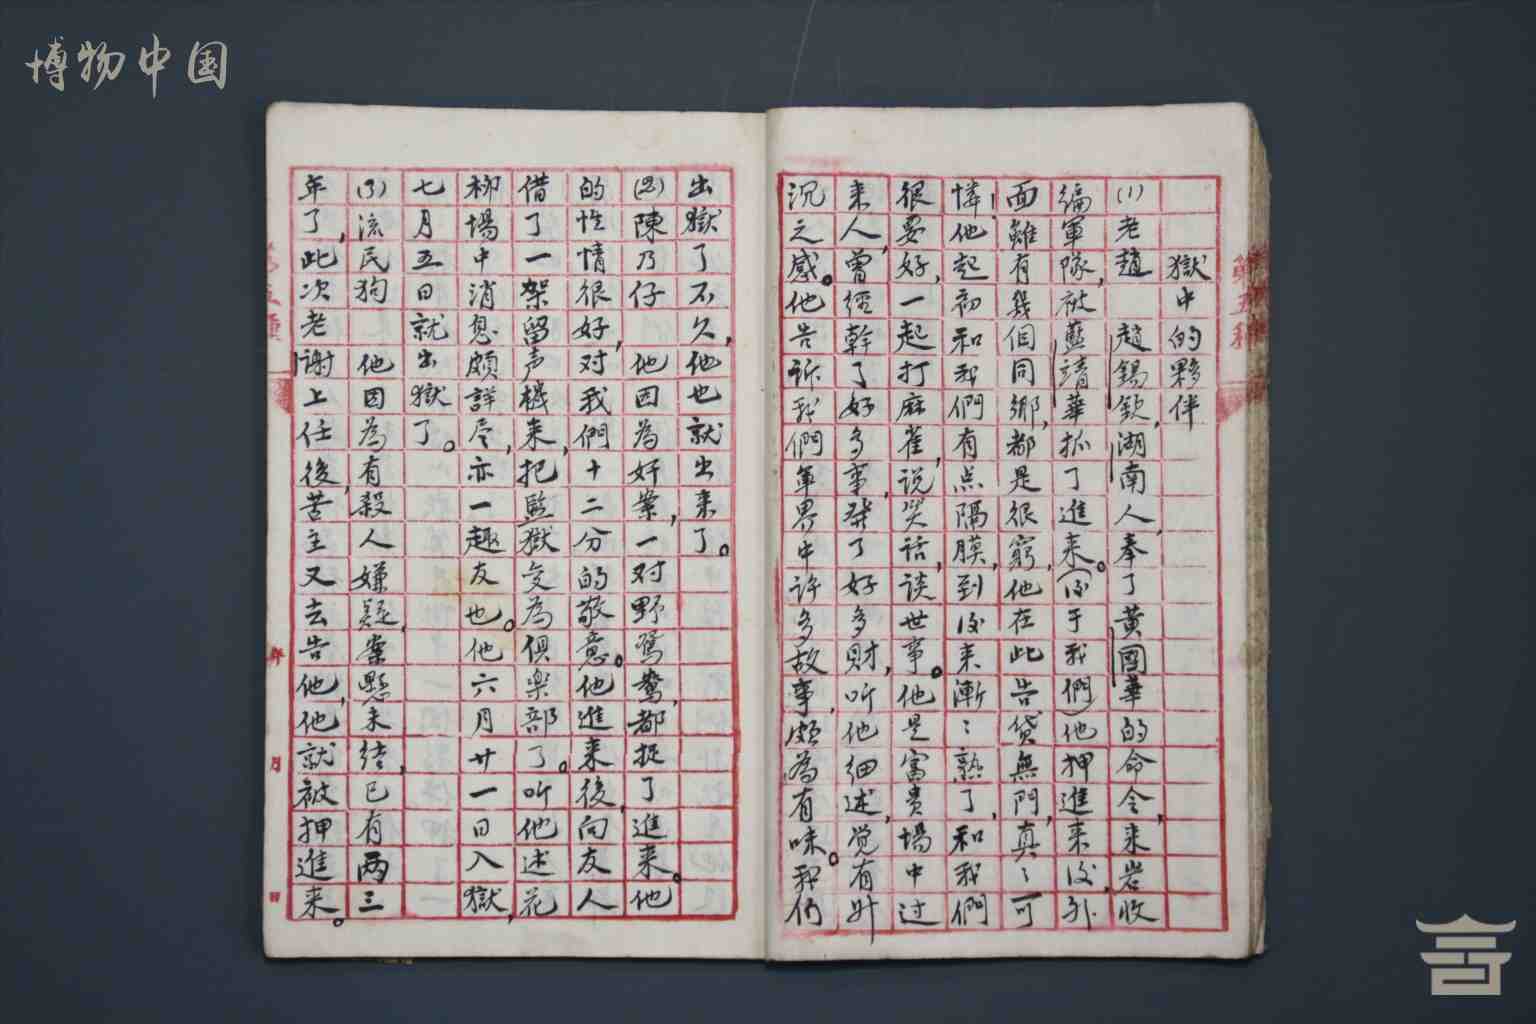 博物中国
獄中的夥伴
(1)老趙　趙錫欽,湖南人,奉了黃國華的命令,来岩收
編軍隊,被藍靖華抓了進来。(後于我們)他押進来后,外
面雖有幾個同鄉,都是很窮,他在此告貸無門,真〻可
憐,他起初和我們有点隔膜,到後来漸〻熟了,和我們
很要好,一起打麻雀,说笑話,談世事。他是富贵場中过
来人,曾經幹了好多事,發了好多財,听他细述,觉有升
沉之感。他告訴我們軍界中許多故事,頗為有味。我們
出獄了不久,他也就出来了。
(2)陳乃仔　他因為奸案,一对野鴛鴦,都捉了進来。他
的性情很好,对我們十二分的敬意。他進来後,向友人
借了一架留声機来,把監獄变為俱楽部了。听他述花
柳場中消息頗詳尽,亦一趣友也。他六月廿一日入獄,
七月五日就出獄了。
(3)流民狗　他因為有殺人嫌疑,案懸未结,已有两三
年了,此次老謝上任後,苦主又去告他,他就被押進来。
第五種
年
月
日